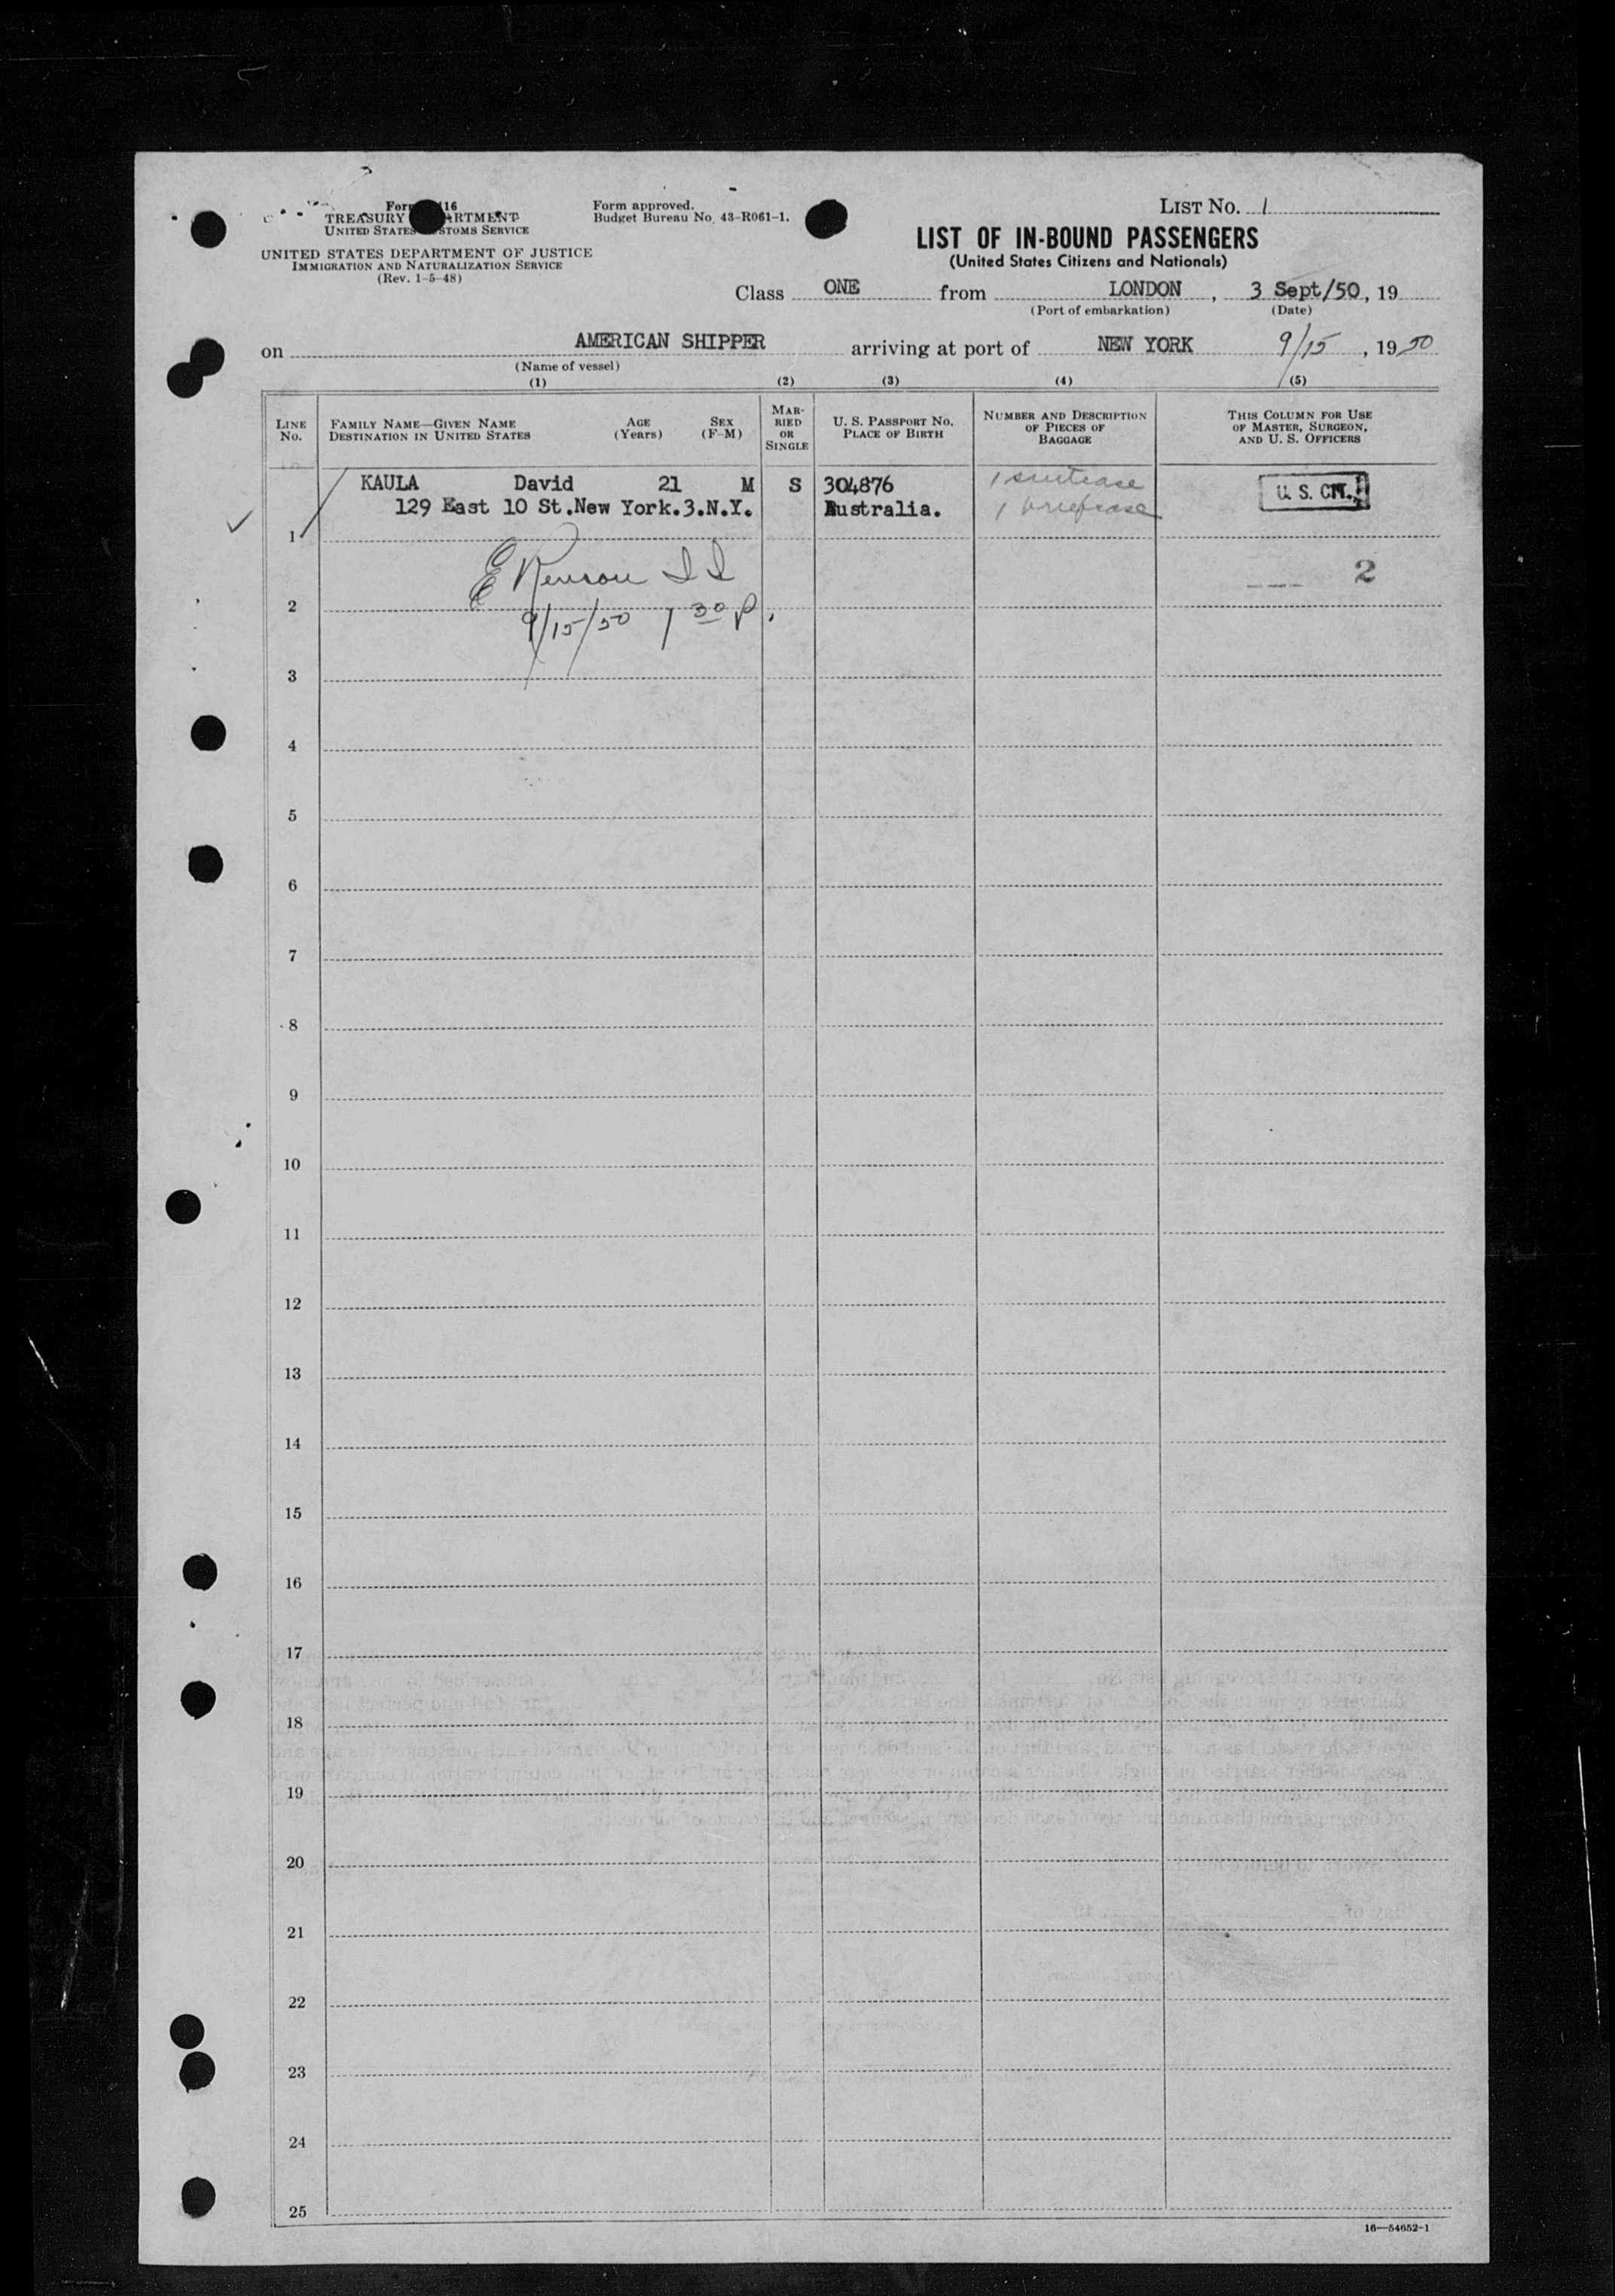 LIST No. 1
TREASURY
UNITED STATES
Form approved.
Budget Bureau No. 43-R061-1.
UNITED STATES DEPARTMENT OF JUSTICE
IMMIGRATION AND NATURALIZATION SERVICE
(Rev. 1-5-48)
LIST OF IN-BOUND PASSENGERS
(United States Citizens and Nationals)
Class ONE from LONDON, 3 Sept/50, 19
(Port of embarkation) (Date)
on AMERICAN SHIPPER arriving at port of NEW YORK 9/15, 1950
(Name of vessel)
(1) (2) (3) (4) (5)
LINE No.
FAMILY NAME—GIVEN NAME AGE SEX
DESTINATION IN UNITED STATES (Years) (F-M)
MAR-
RIED
OR
SINGLE
U. S. PASSPORT NO.
PLACE OF BIRTH
NUMBER AND DESCRIPTION
OF PIECES OF
BAGGAGE
THIS COLUMN FOR USE
OF MASTER, SURGEON,
AND U. S. OFFICERS
KAULA David 21 M S 304876 1 suitcase U. S. CIT.
129 East 10 St.New York.3.N.Y. Australia. 1 briefcase
1
2
2
9/15/50 1 30 p.
3
4
5
6
7
8
9
10
11
12
13
14
15
16
17
18
19
20
21
22
23
24
25
16—54652-1